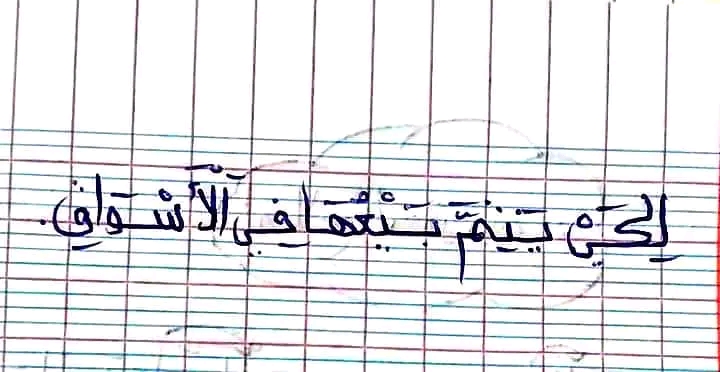 لِكَيْ يَتِمَّ بَيْعُهَا فِي اَلْأَسْوَاقِ.